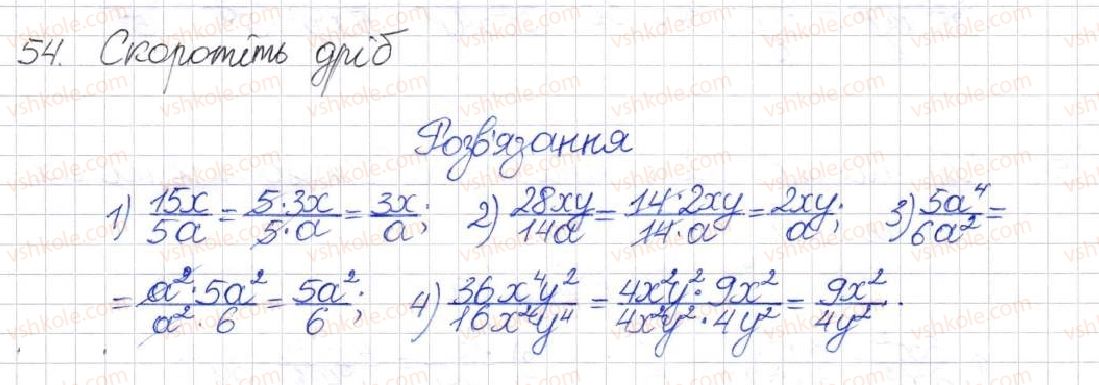 54. Скоротіть дріб
Розв'язання
1) 15x/5a = 5·3x/5·a = 3x/a; 2) 28xy/14a = 14·2xy/14·a = 2xy/a; 3) 5a⁴/6a² =
= a²·5a²/a²·6 = 5a²/6; 4) 36x⁴y²/16x²y⁴ = 4x²y²·9x²/4x²y²·4y² = 9x²/4y².